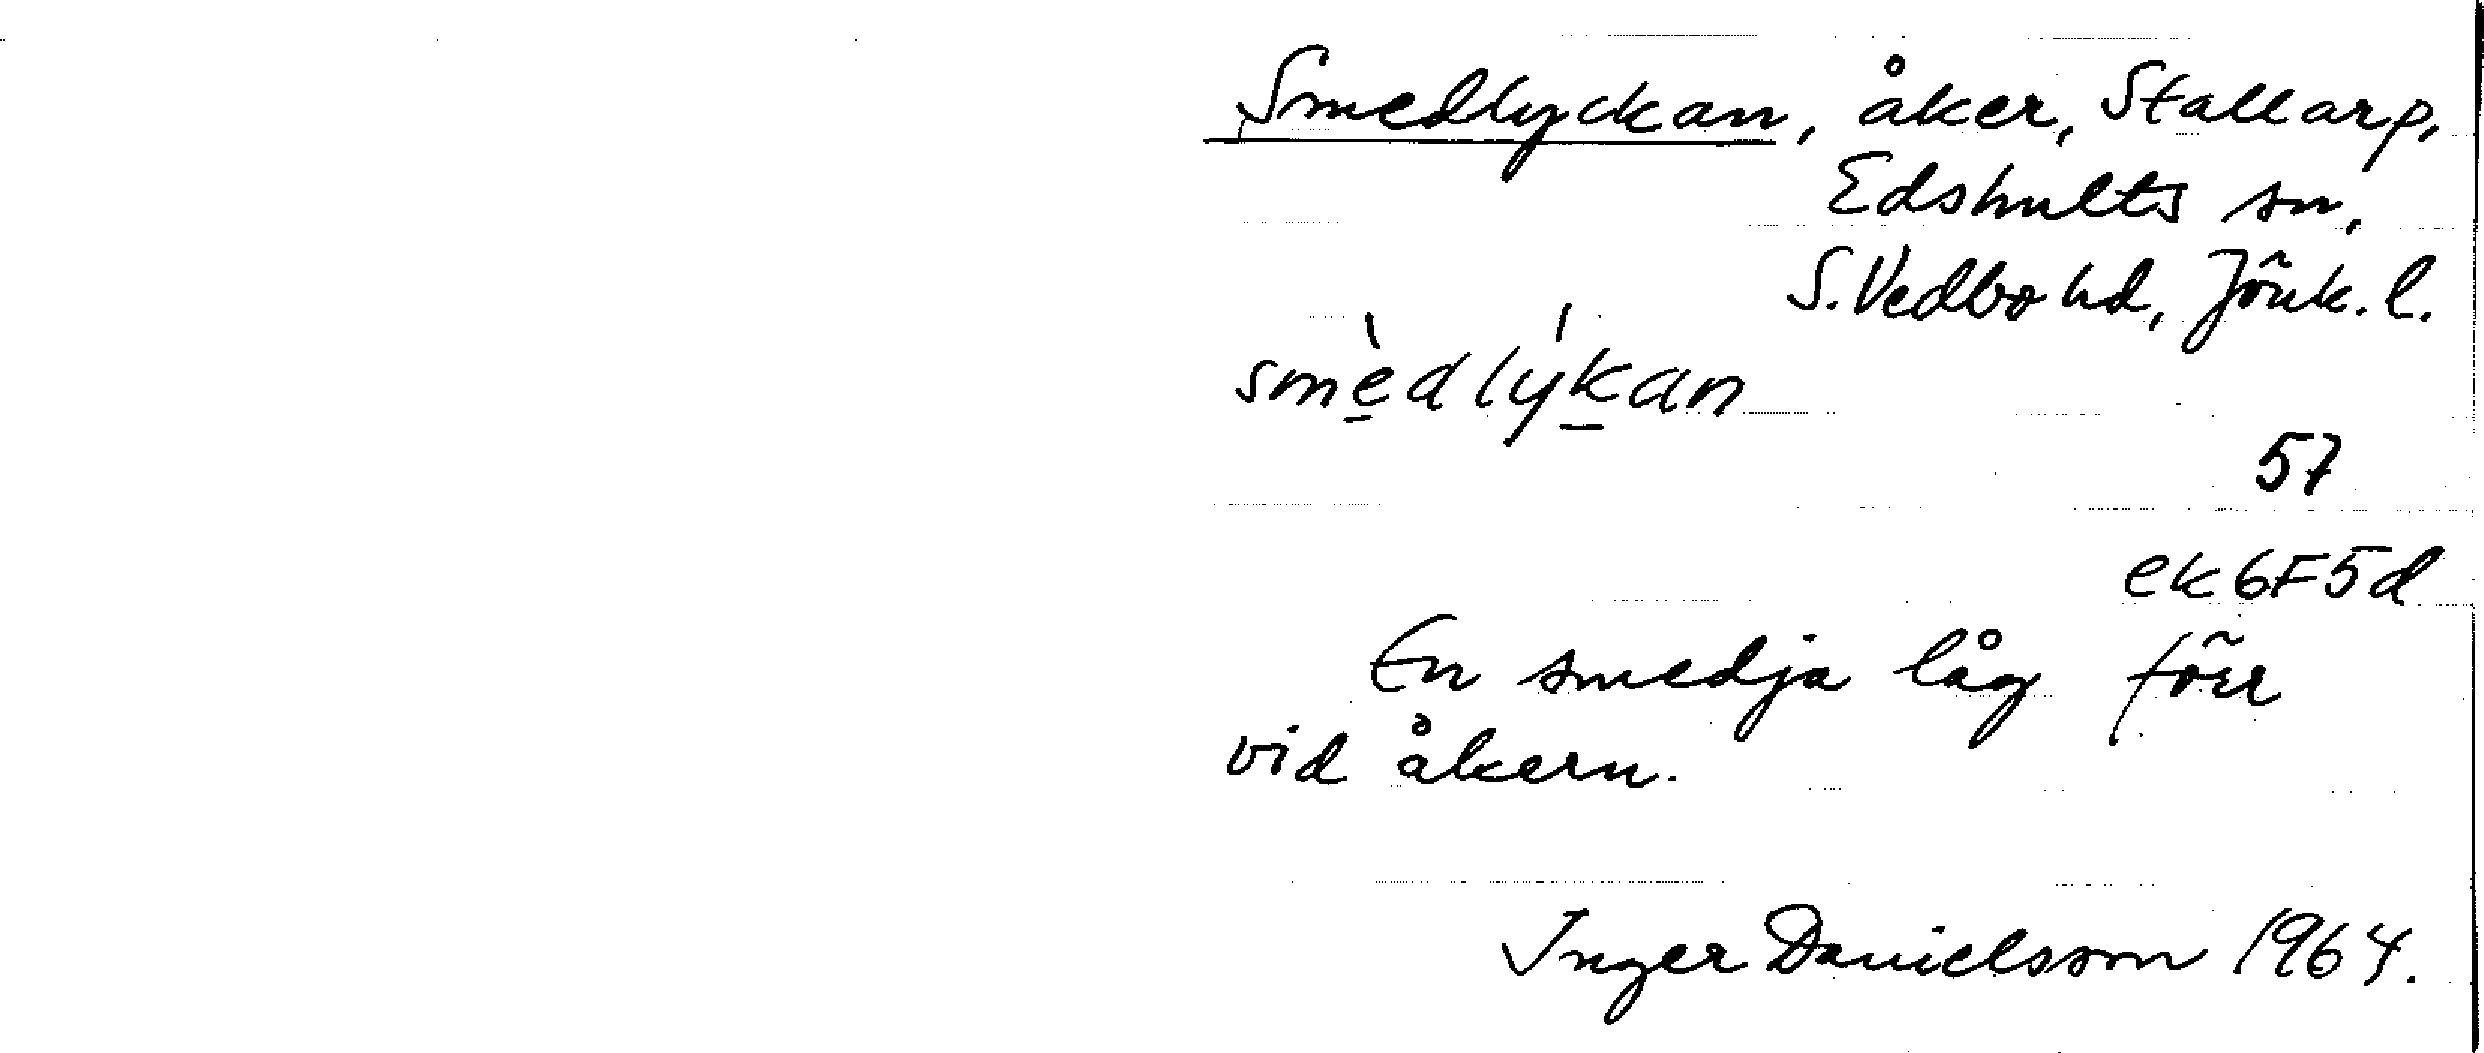 Smedlyckan, åker, Stallarp,
Edshults sn,
S. Vedbo hd, Jönk. l.
smè̱dlýḵan
57
ek6F5d
En smedja låg förr
vid åkern.
Inger Danielsson 1964.